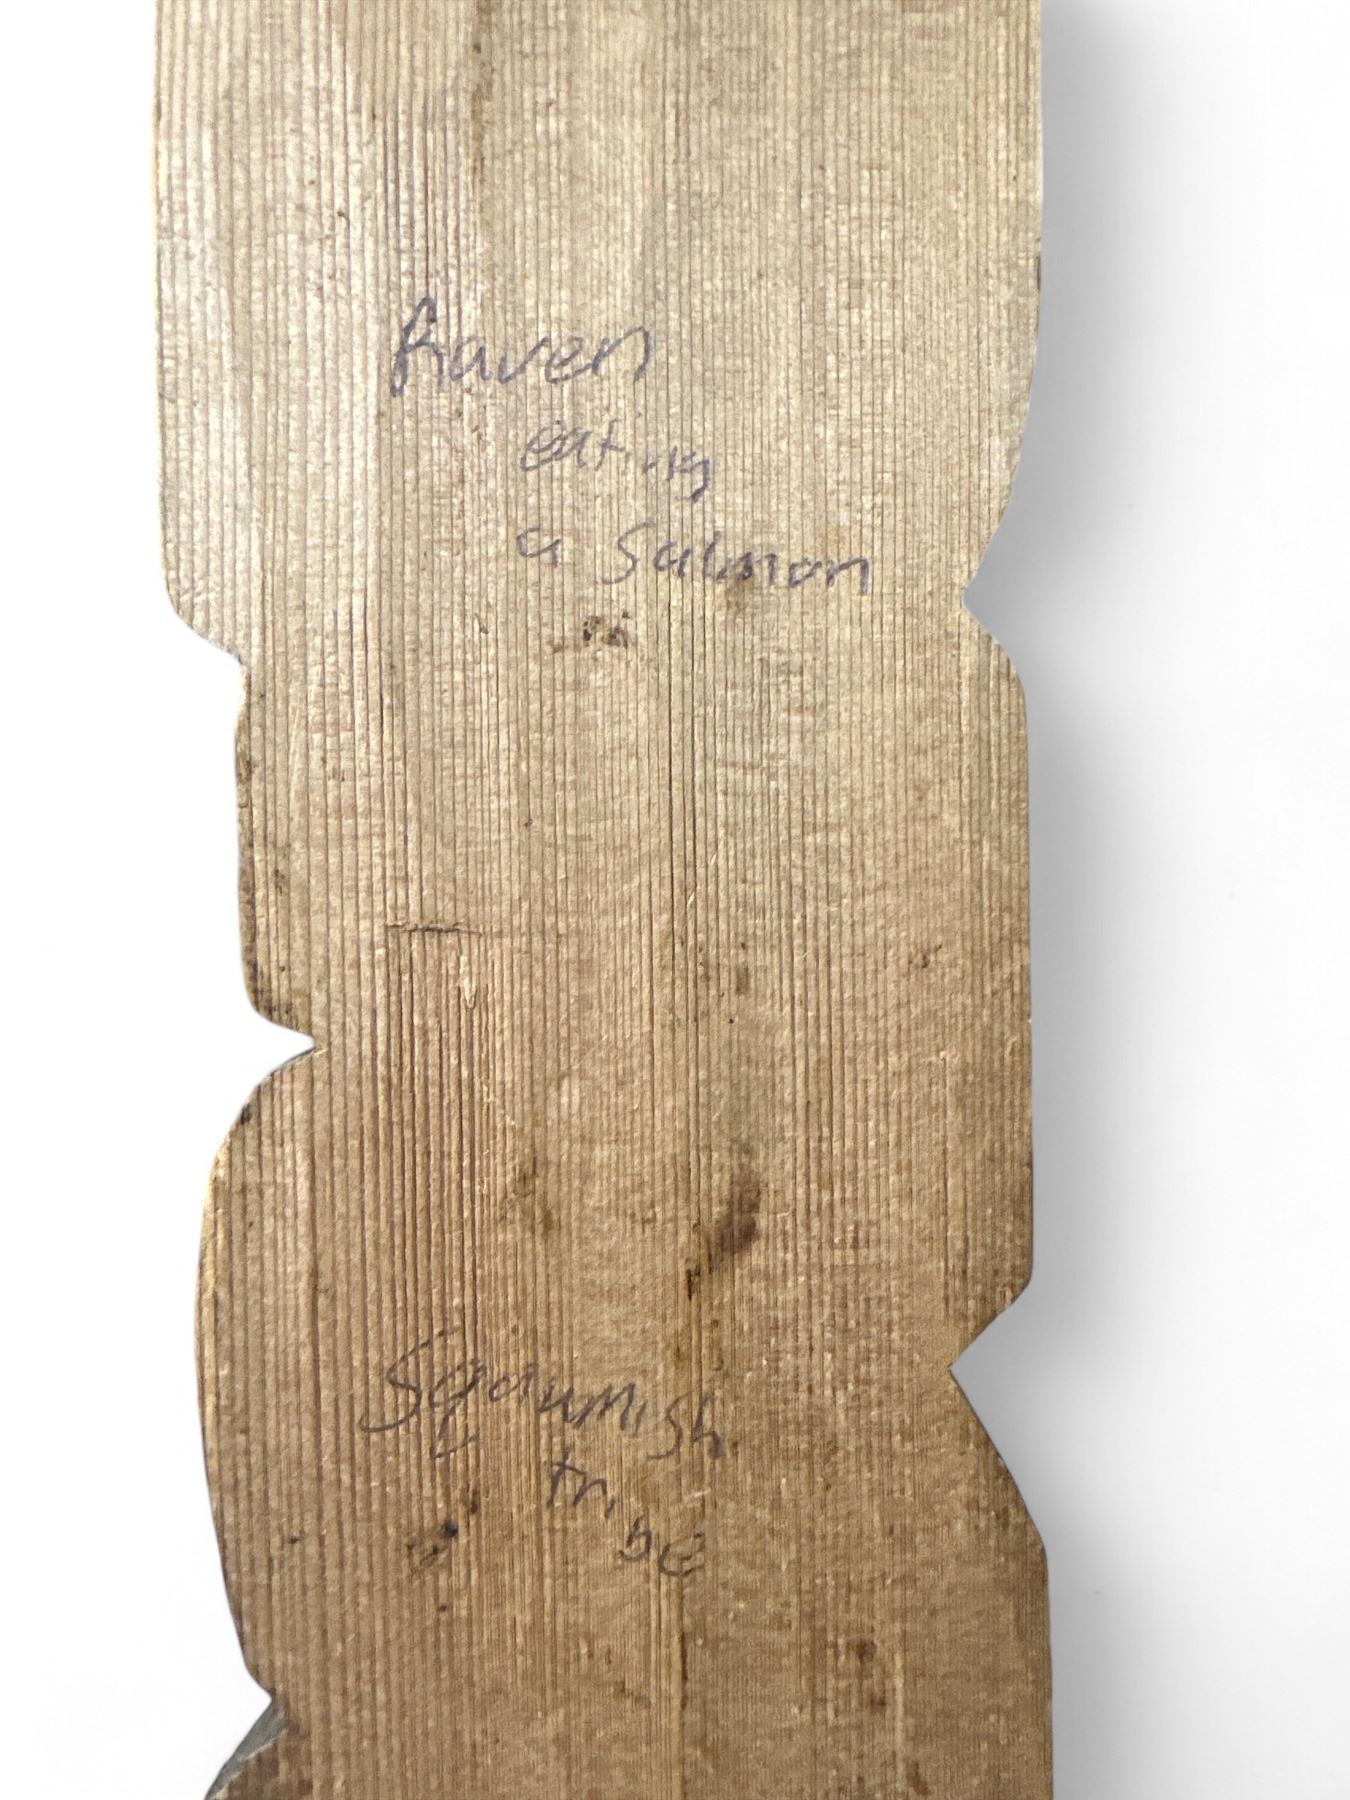 Raven
eating
a Salmon
Sqaumish
tribe